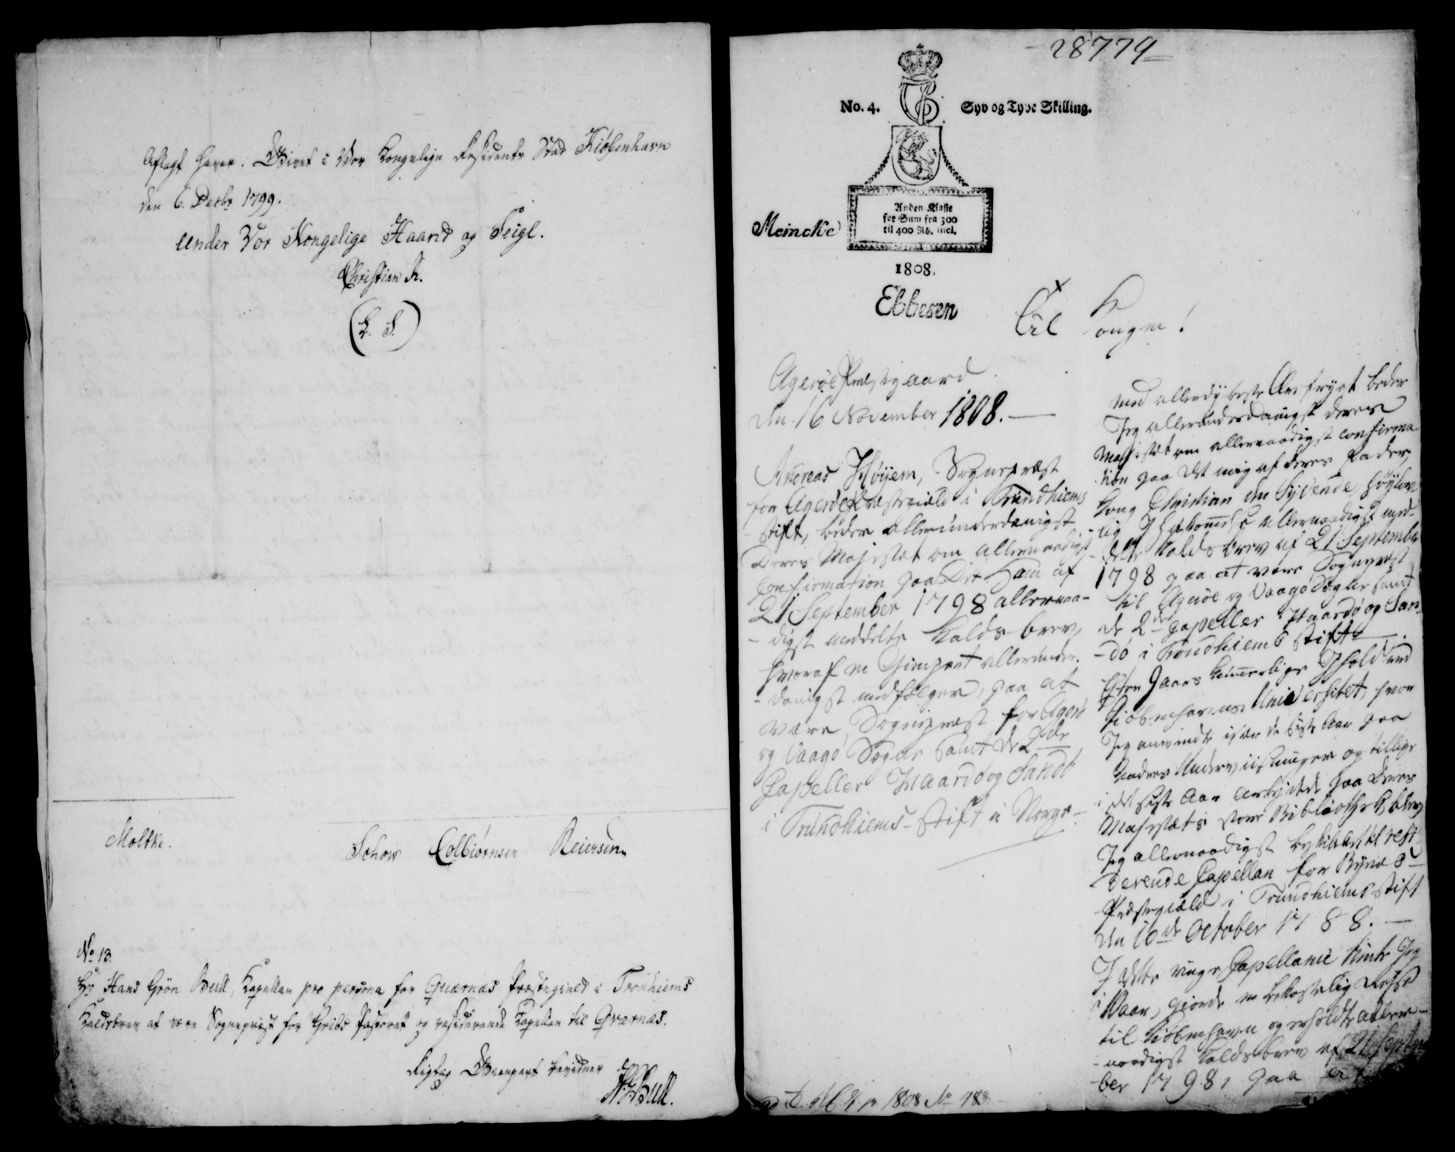 Aflagt haver. Givet i Vor Kongelige Residents Stad Kiøbenhavn
den 6. Decbr 1799.
Under Vor Kongelige Haand og Seigl.
Christian R.
(L. S.)
Moltke.
Schow Colbiørnsen Reiersen.
No 13.
Hr Hans Grøn Bull, Kapellan pro persona for Quærnæs Præstegield i Tronhiems
Kaldsbrev at være Sognepræst for Gribs Pastorat og residerende Kapellan til Qværnæs.
Rigtig Gienpart bevidner
HGBull.
28779
No. 4. Syv og Tyve Skilling.
Anden Klasse
for Sum fra 300
til 400 Rd. incl.
Meincke
1808.
Ebbesen
Til Kongen!
Agerøe Præstegaard
den 16 November 1808.
Andreas Høyem, Sognepræst
for Agerøe Præstegield i Trundhiems
Stift, beder allerunderdanigst
Deres Majestæt om allernaadigst
Confirmation paa Det ham af
21 September 1798 allernaa-
digst meddelte Kaldsbrev,
hvoraf en Gienpart allerunder-
danigst medfølger, paa at
være Sognepræst for Agerø
og Vaagø Sogne samt de 2de
Capeller Haardø og Sandø
i Trundhiems-Stift i Norge.
Med allerdybeste Ærefrygt beder
Jeg allerunderdanigst Deres
Majestæt om allernaadigst Confirma-
tion paa det mig af Deres Fader
Kong Christian den Syvende, høylov-
lig Ihukommelse allernaadigst med-
deelte Kaldsbrev af 21 September
1798 paa at være Sognepræst
til Agerøe og Vaagø Sogne samt
de 2de Capeller Haardø og San-
dø i Trundhiems Stift.
Efter Aars kummerlige Ophold ved
Kiøbenhavns Universitet, hvor
Jeg anvendte især de siste Aar paa
Andres Underviisninger og tillige
i det siste Aar arbeydede paa Deres
Majestæts store Bibliothek, blev
Jeg allernaadigst beskikket til resi-
derende Capellan for Bynæs
Præstegield i Trundhiems Stift
den 10de October 1788.
I dette ringe Capellanie
Aar, giorde en bekostelig Reyse
til Kiøbenhavn og erholdte aller-
naadigst Kaldsbrev af 21 Septem-
ber 1798, paa
1808 No 183